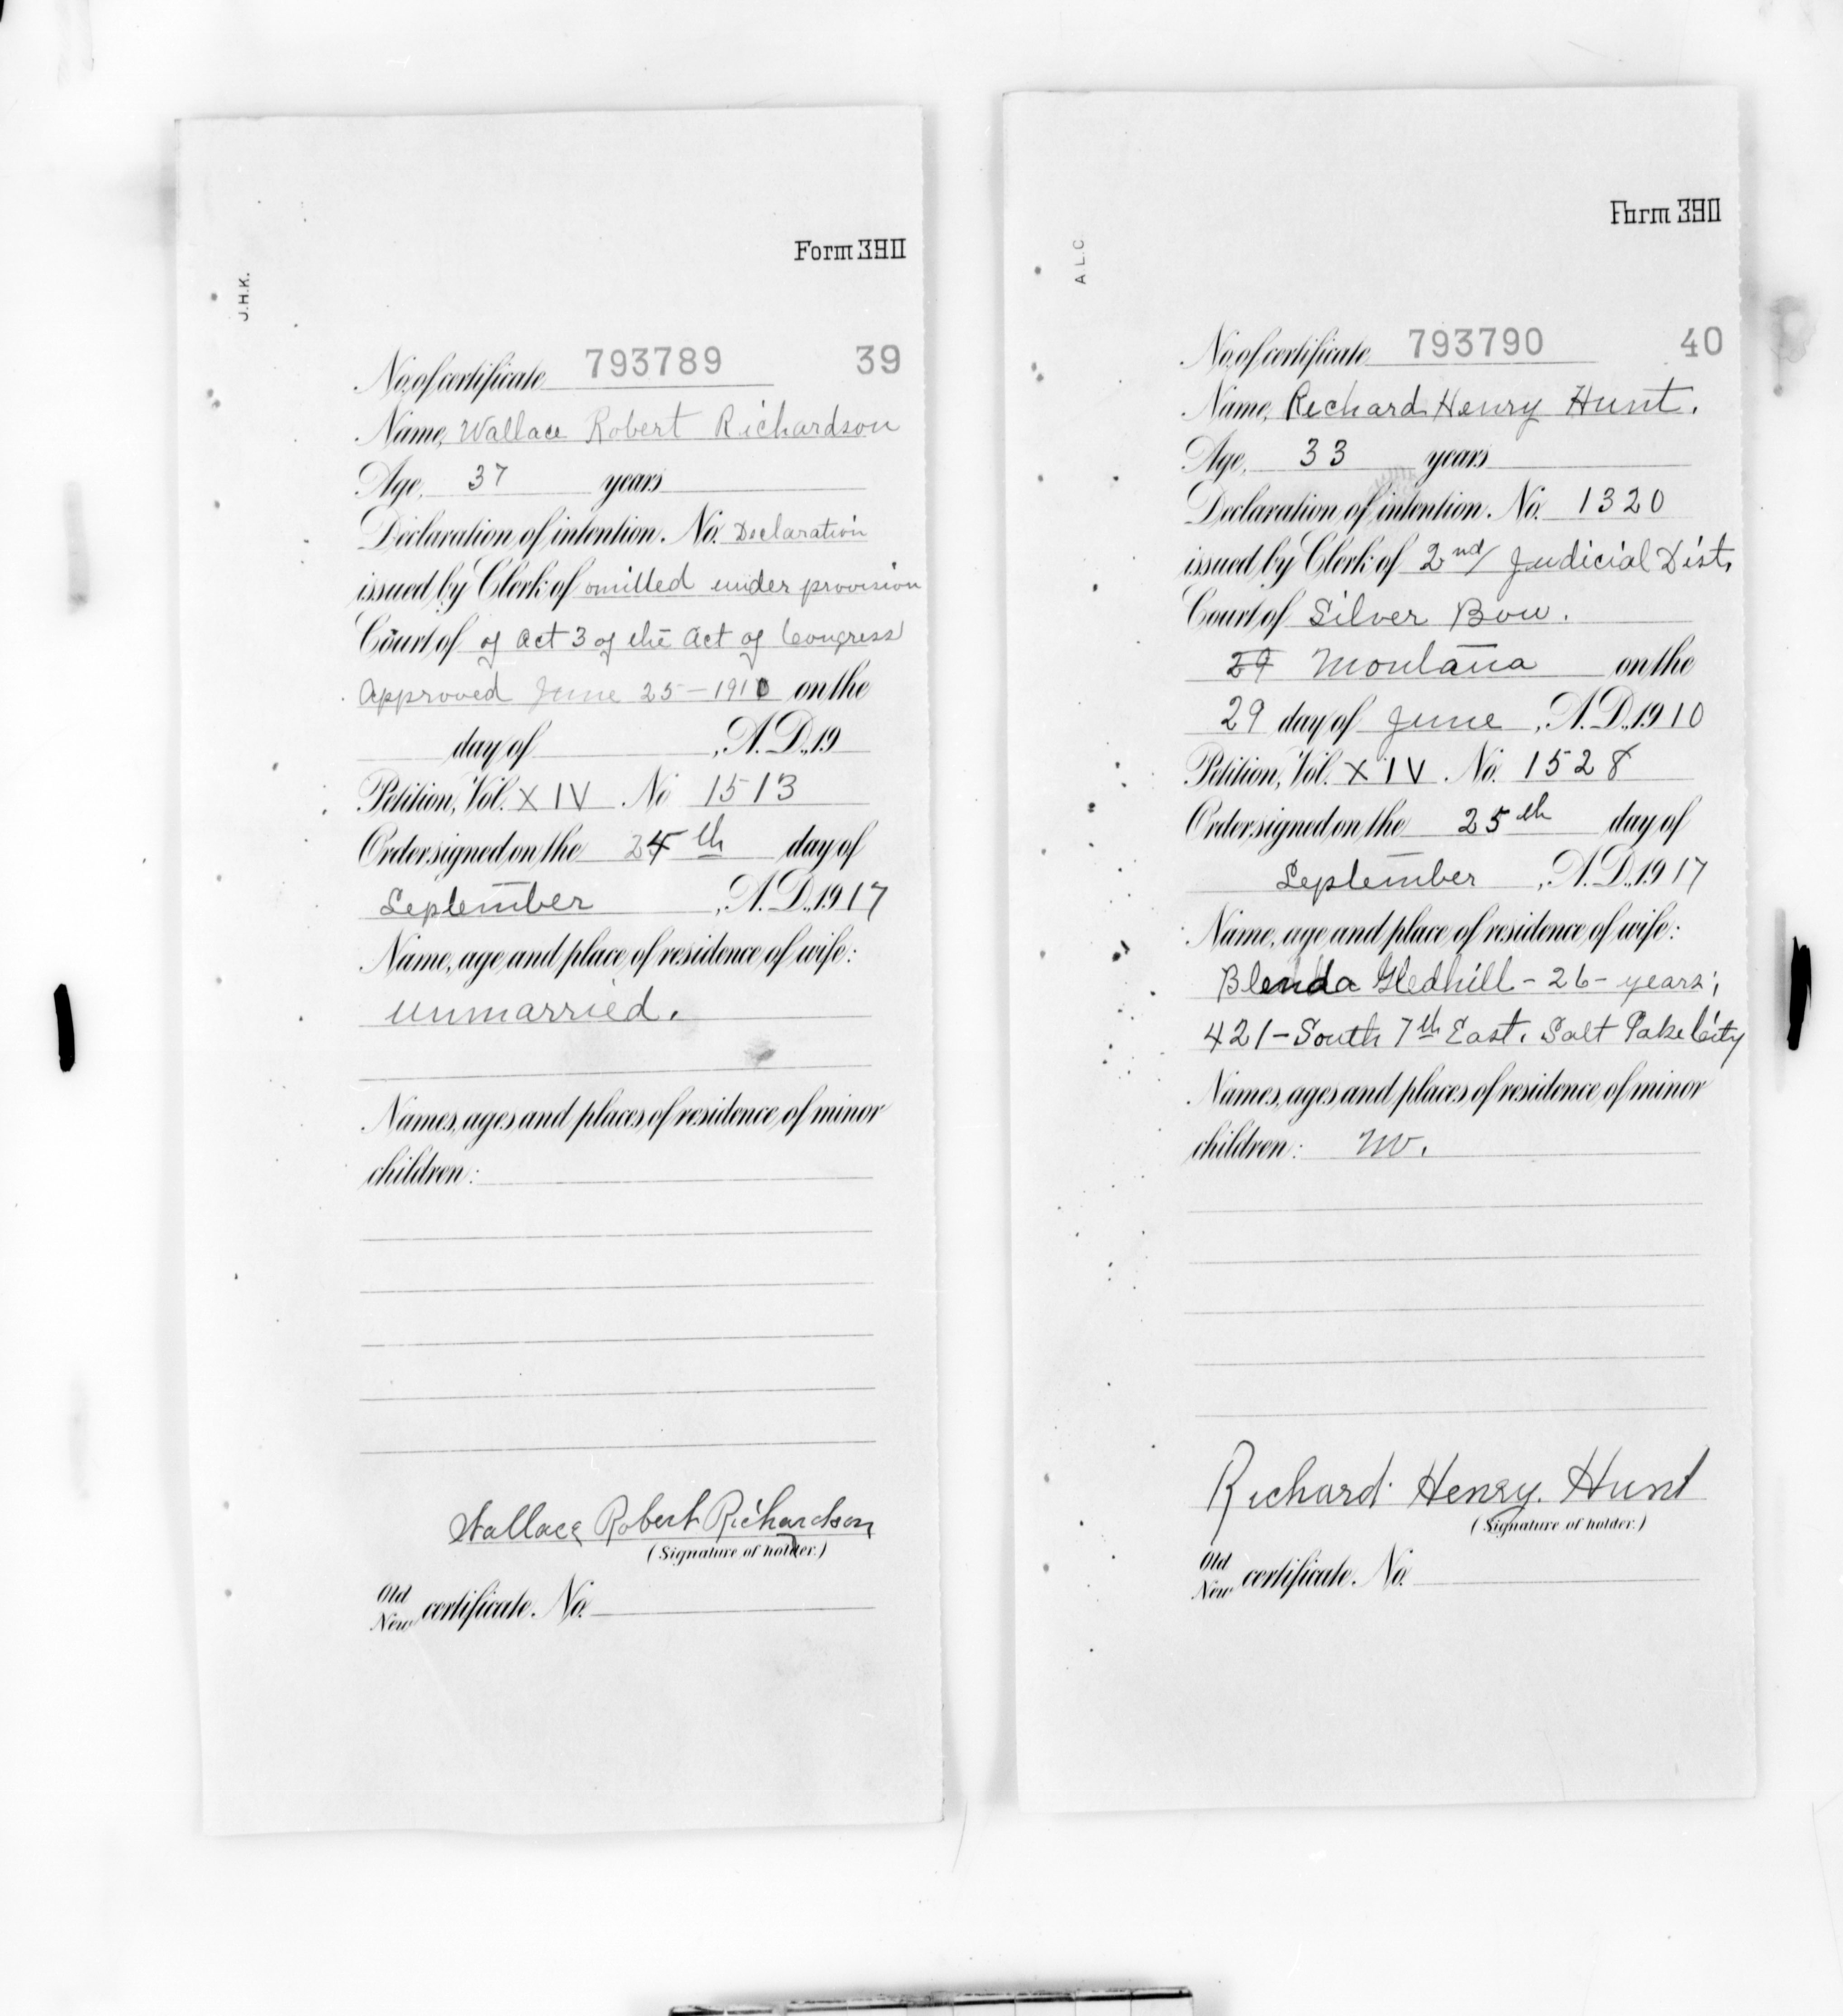 Form 390
J.H.K.
No. of certificate 793789 39
Name, Wallace Robert Richardson
Age, 37 years
Declaration of intention. No. Declaration
issued by Clerk of omitted under provision
Court of of Act 3 of the Act of Congress
Approved June 25 - 1910 on the
day of , A.D., 19
Petition, Vol. XIV No 1513
Order signed on the th day of
September , A.D., 1917
Name, age and place of residence of wife:
Unmarried.
Names, ages and places of residence of minor
children:
Wallace Robert Richardson
(Signature of holder.)
Old
New certificate. No.
Form 390
A L.C.
No. of certificate 793790 40
Name, Richard Henry Hunt.
Age, 33 years
Declaration of intention. No. 1320
issued by Clerk of 2nd Judicial Dist,
Court of Silver Bow.
29 Montana on the
29 day of June , A.D., 1910
Petition, Vol. XIV No. 1528
Order signed on the 25th day of
September , A.D., 1917
Name, age and place of residence of wife:
Blenda Gledhill - 26 - years;
421 - South 7th East. Salt Lake City
Names, ages and places of residence of minor
children: no.
Richard Henry Hunt
(Signature of holder.)
Old
New certificate. No.